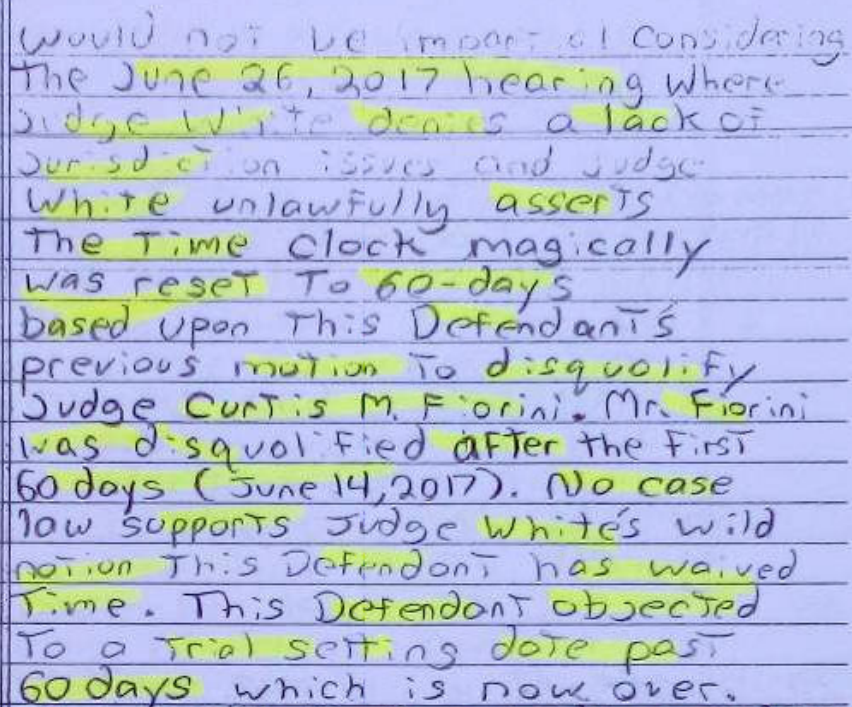 would not be impartial considering
The June 26, 2017 hearing where
Judge White denies a lack of
Jurisdiction issues and Judge
White unlawfully asserts
The Time Clock magically
was reset To 60-days
based upon This Defendant's
previous motion To disqualify
Judge Curtis M. Fiorini. Mr. Fiorini
was disqualified after the first
60 days (June 14, 2017). No case
law supports Judge White's wild
notion This Defendant has waived
Time. This Defendant objected
To a Trial setting date past
60 days which is now over.